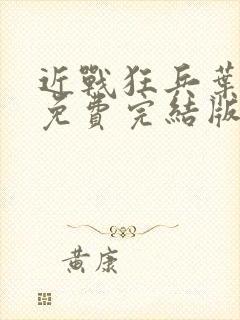 近戰狂兵葉
免費完結版
黃康